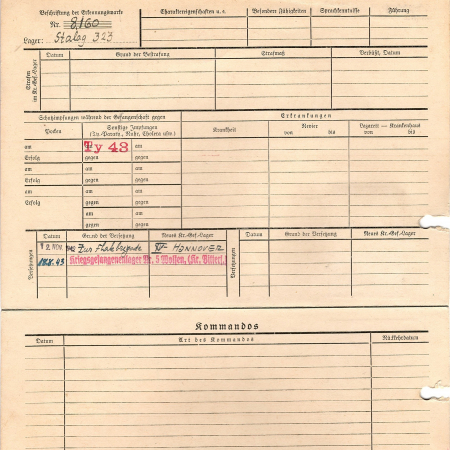 Beschriftung der Erkennungsmarke
Nr. 8160
Lager: Stalag 323
Charaktereigenschaften u. a.
Besondere Fähigkeiten
Sprachkenntnisse
Führung
Strafen im Kr.-Gef.-Lager
Datum
Grund der Bestrafung
Strafmaß
Verbüßt, Datum
Schutzimpfungen während der Gefangenschaft gegen
Erkrankungen
Pocken
Sonstige Impfungen
(Ty.-Paraty., Ruhr, Cholera usw.)
Krankheit
Revier
von bis
Lazarett — Krankenhaus
von bis
am Ty 43 am
Erfolg gegen gegen
am am am
Erfolg gegen gegen
am am am
Erfolg gegen gegen
am am
gegen gegen
Versetzungen
Datum Grund der Versetzung Neues Kr.-Gef.-Lager
2. NOV. Zur HANNOVER
43 Kriegsgefangenenlager Nr. 5 Wolfen, (Kr. Bitterf.)
Versetzungen
Datum Grund der Versetzung Neues Kr.-Gef.-Lager
Kommandos
Datum Art des Kommandos Rückkehrdatum